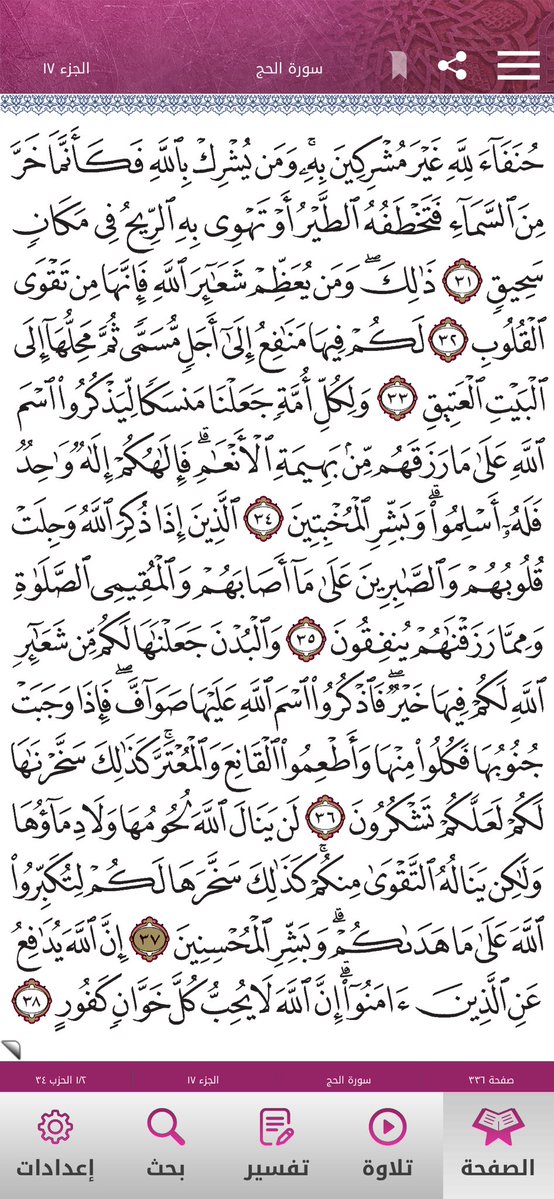 سورة الحج
الجزء ١٧
حُنَفَآءَ لِلَّهِ غَيْرَ مُشْرِكِينَ بِهِۦۚ وَمَن يُشْرِكْ بِٱللَّهِ فَكَأَنَّمَا خَرَّ
مِنَ ٱلسَّمَآءِ فَتَخْطَفُهُ ٱلطَّيْرُ أَوْ تَهْوِى بِهِ ٱلرِّيحُ فِى مَكَانٍ
سَحِيقٍ ٣١ ذَٰلِكَۖ وَمَن يُعَظِّمْ شَعَٰٓئِرَ ٱللَّهِ فَإِنَّهَا مِن تَقْوَى
ٱلْقُلُوبِ ٣٢ لَكُمْ فِيهَا مَنَٰفِعُ إِلَىٰٓ أَجَلٍ مُّسَمًّى ثُمَّ مَحِلُّهَآ إِلَى
ٱلْبَيْتِ ٱلْعَتِيقِ ٣٣ وَلِكُلِّ أُمَّةٍ جَعَلْنَا مَنسَكًا لِّيَذْكُرُوا۟ ٱسْمَ
ٱللَّهِ عَلَىٰ مَا رَزَقَهُم مِّنۢ بَهِيمَةِ ٱلْأَنْعَٰمِۗ فَإِلَٰهُكُمْ إِلَٰهٌ وَٰحِدٌ
فَلَهُۥٓ أَسْلِمُوا۟ۗ وَبَشِّرِ ٱلْمُخْبِتِينَ ٣٤ ٱلَّذِينَ إِذَا ذُكِرَ ٱللَّهُ وَجِلَتْ
قُلُوبُهُمْ وَٱلصَّٰبِرِينَ عَلَىٰ مَآ أَصَابَهُمْ وَٱلْمُقِيمِى ٱلصَّلَوٰةِ
وَمِمَّا رَزَقْنَٰهُمْ يُنفِقُونَ ٣٥ وَٱلْبُدْنَ جَعَلْنَٰهَا لَكُم مِّن شَعَٰٓئِرِ
ٱللَّهِ لَكُمْ فِيهَا خَيْرٌۖ فَٱذْكُرُوا۟ ٱسْمَ ٱللَّهِ عَلَيْهَا صَوَآفَّۖ فَإِذَا وَجَبَتْ
جُنُوبُهَا فَكُلُوا۟ مِنْهَا وَأَطْعِمُوا۟ ٱلْقَانِعَ وَٱلْمُعْتَرَّۚ كَذَٰلِكَ سَخَّرْنَٰهَا
لَكُمْ لَعَلَّكُمْ تَشْكُرُونَ ٣٦ لَن يَنَالَ ٱللَّهَ لُحُومُهَا وَلَا دِمَآؤُهَا
وَلَٰكِن يَنَالُهُ ٱلتَّقْوَىٰ مِنكُمْۚ كَذَٰلِكَ سَخَّرَهَا لَكُمْ لِتُكَبِّرُوا۟
ٱللَّهَ عَلَىٰ مَا هَدَىٰكُمْۗ وَبَشِّرِ ٱلْمُحْسِنِينَ ٣٧ إِنَّ ٱللَّهَ يُدَٰفِعُ
عَنِ ٱلَّذِينَ ءَامَنُوٓا۟ۗ إِنَّ ٱللَّهَ لَا يُحِبُّ كُلَّ خَوَّانٍ كَفُورٍ ٣٨
صفحة ٣٣٦
سورة الحج
الجزء ١٧
١/٢ الحزب ٣٤
الصفحة
تلاوة
تفسير
بحث
إعدادات